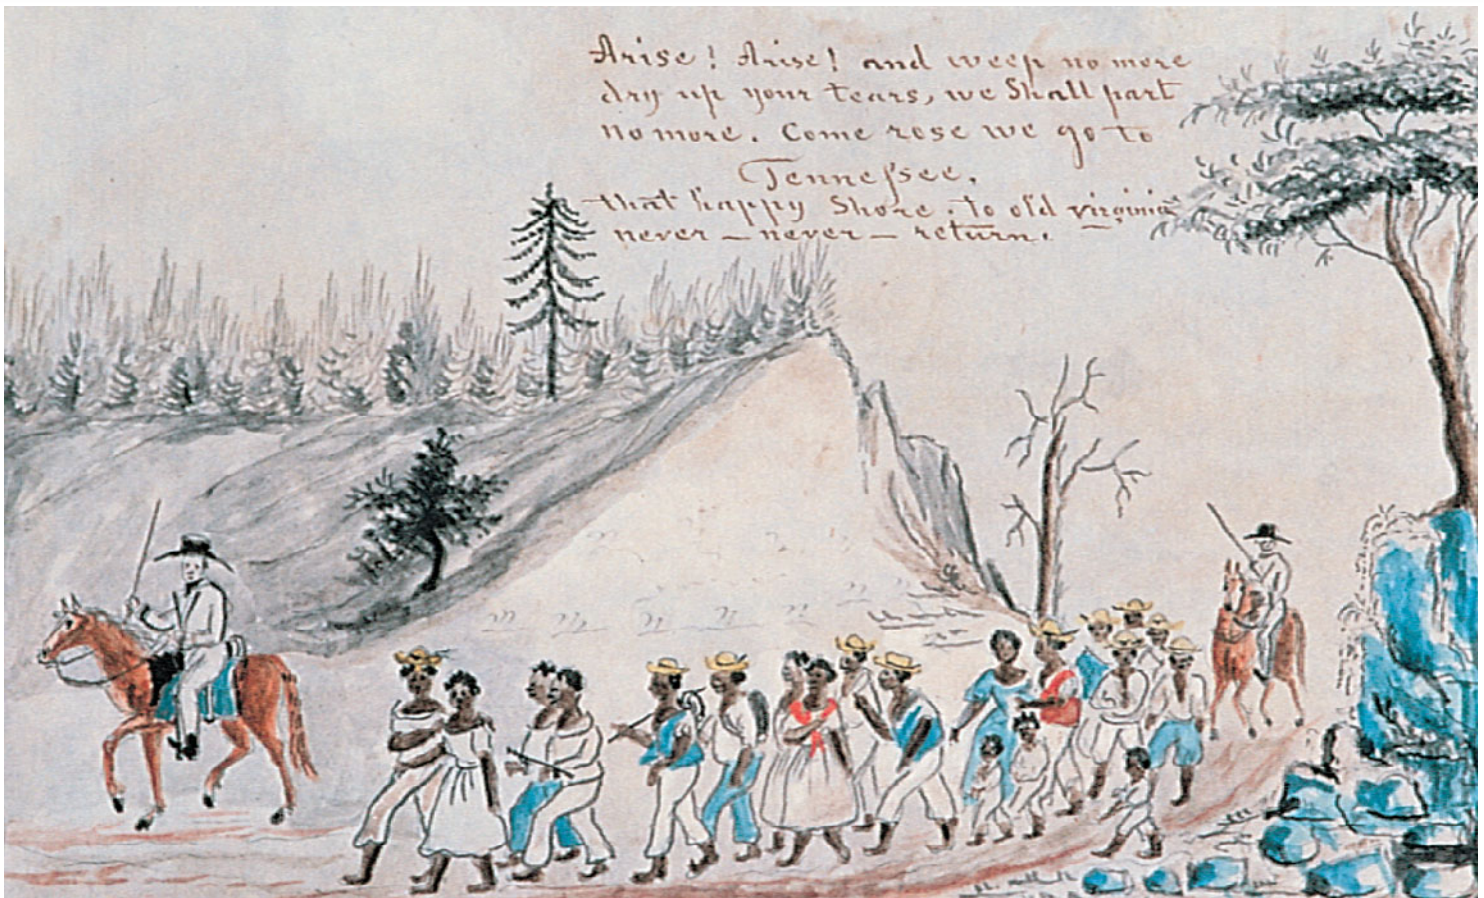 Arise! Arise! and weep no more
dry up your tears, we Shall part
no more. Come rose we go to
Tenneſsee,
that happy Shore. to old virginia
never — never — return.